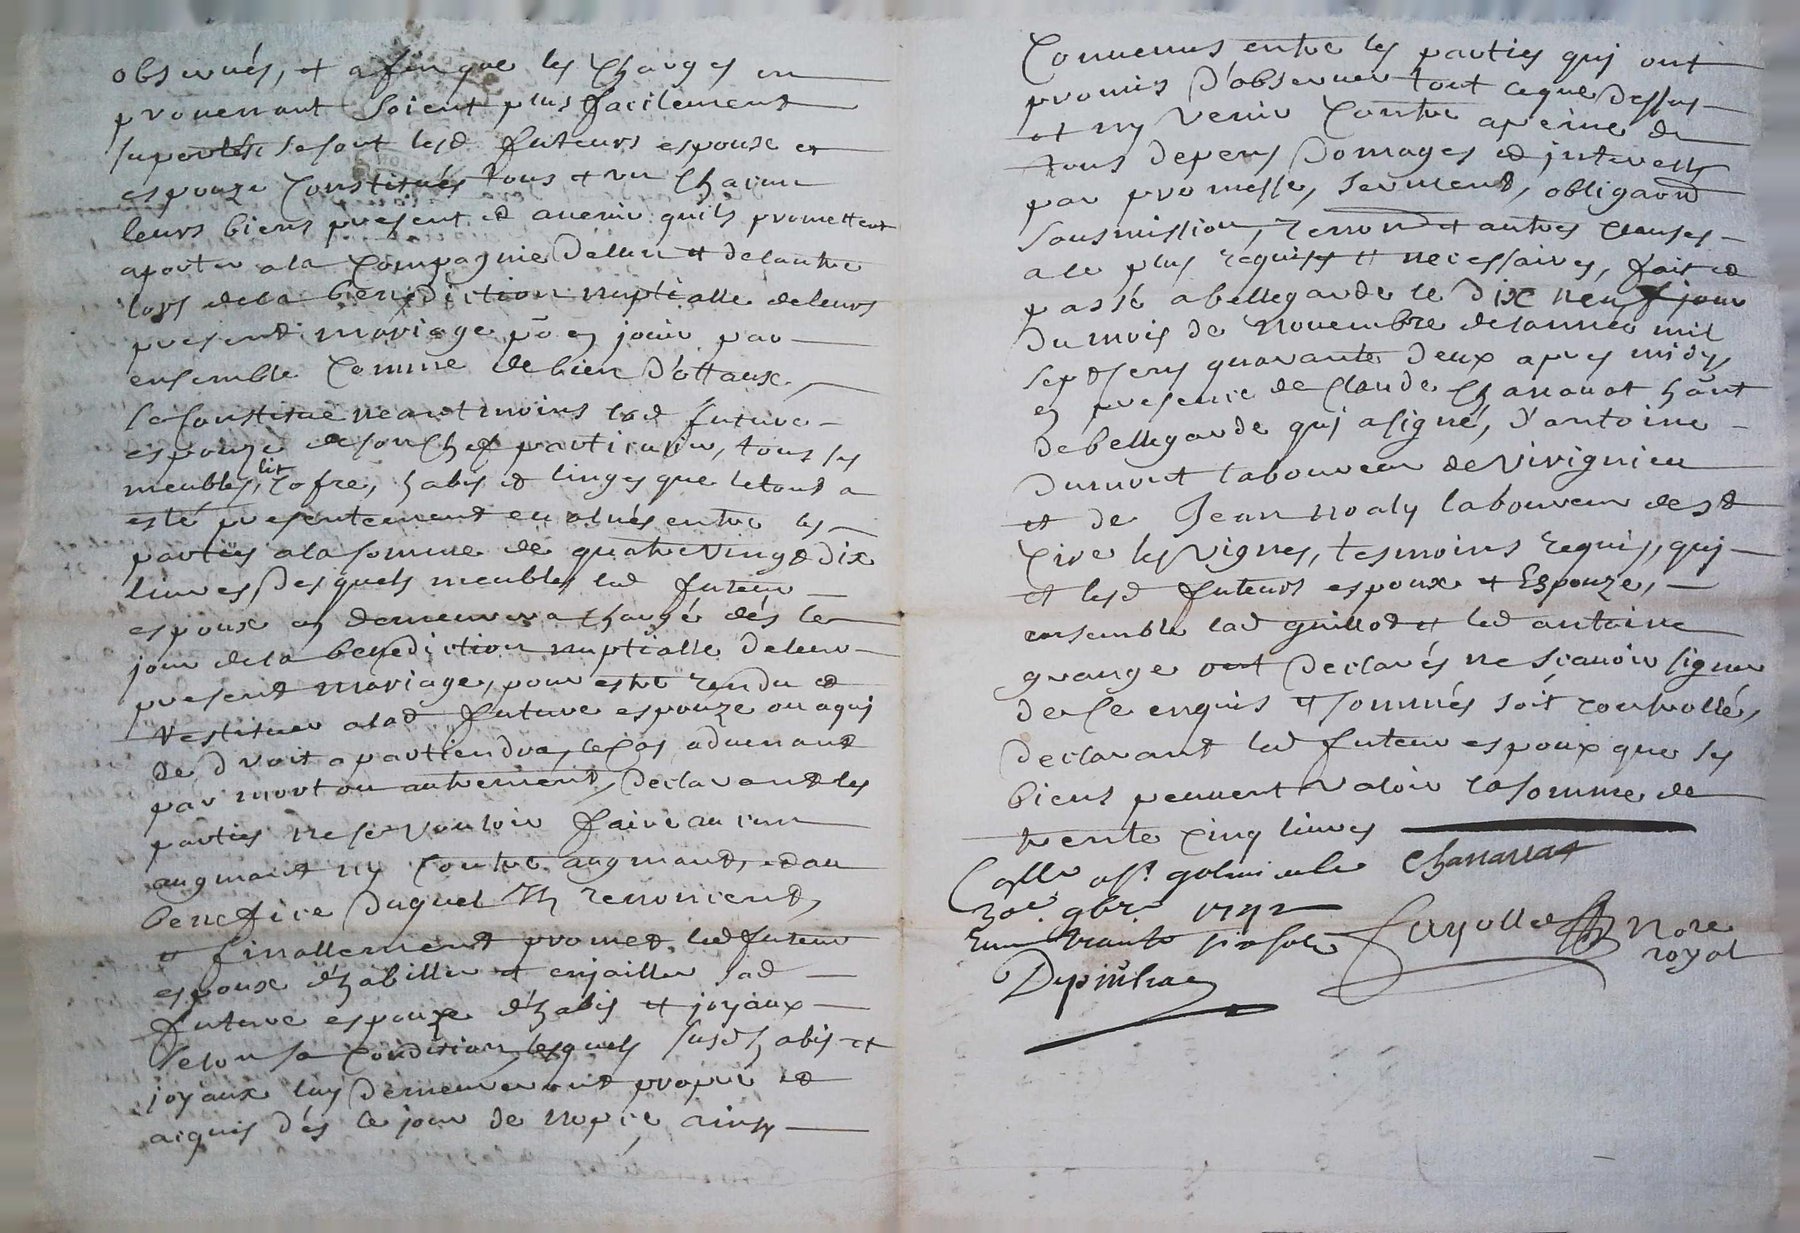 observés, et afin que les charges en
provenant soient plus facilement
suportées se sont lesd futeurs espoux et
espouze constitués tous et un chacun
leurs biens present et avenir quils promettent
aporter a la compagnie delun et delautre
lors dela benediction nuptialle deleurs
present mariage po en jouir par
ensemble comme de bien d'ottaux,
se constitue neantmoins lad future
espouze deson chef particulier, tous ses
meubles, lit cofre, habis et linges que letout a
esté presentement evalués entre les
parties alasomme de quatre vingt dix
livres, Desquels meubles led futeur
espoux en demeurera chargé dés le
jour dela benediction nuptialle deleur
present mariage, pour estre rendu et
restituer alad future espouze ou aqui
de droit apartiendra, le cas advenant
par mort ou autrement, declarant les
parties nese vouloir faire aucun
augmant ny contre augmant, et au
benefice duquel ils renoncent,
et finallement promet led futeur
espoux d'habiller et enjailler sad
future espouze d'habis et joyaux
selon sa condition, lesquels susd habis et
joyaux luy demeureront propre et
acquis dés le jour de nopce, ainsy
Convenus entre les parties qui ont
promis d'observer tout ceque dessus
et ny venir contre apeine de
tous depens domages et interests
par promesse, serment, obligaōn
sousmission, renonō et autres clauses
a ce plus requises et necessaires, fait et
passé abellegarde le dix neuf jour
du mois de novembre delannée mil
sept sens quarante deux apres midy,
en presence de Claude Chanavat habt
debellegarde qui asigné, d'antoine
dumont laboureur de Virignieu
et de Jean noaly laboureur de st
Cire les Vignes, tesmoins requis, qui
et lesd futeurs espoux et Espouze,
ensemble lad guillot et led antoine
grange ont declarés ne sçavoir signer
dece enquis et sommés soit controllé,
declarant led futeur espoux que ses
biens peuvent valoir lasomme de
trente cinq livres
Chanavat
30e. 9bre 1742
Fayolle Nore
royal